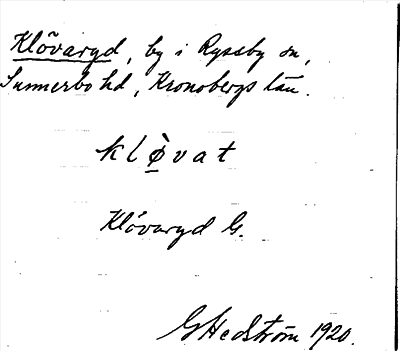 Klövaryd, by i Ryssby sn,
Sunnerbo hd, Kronobergs län.
klø̱vat
Klövaryd G.
GHedström 1920.